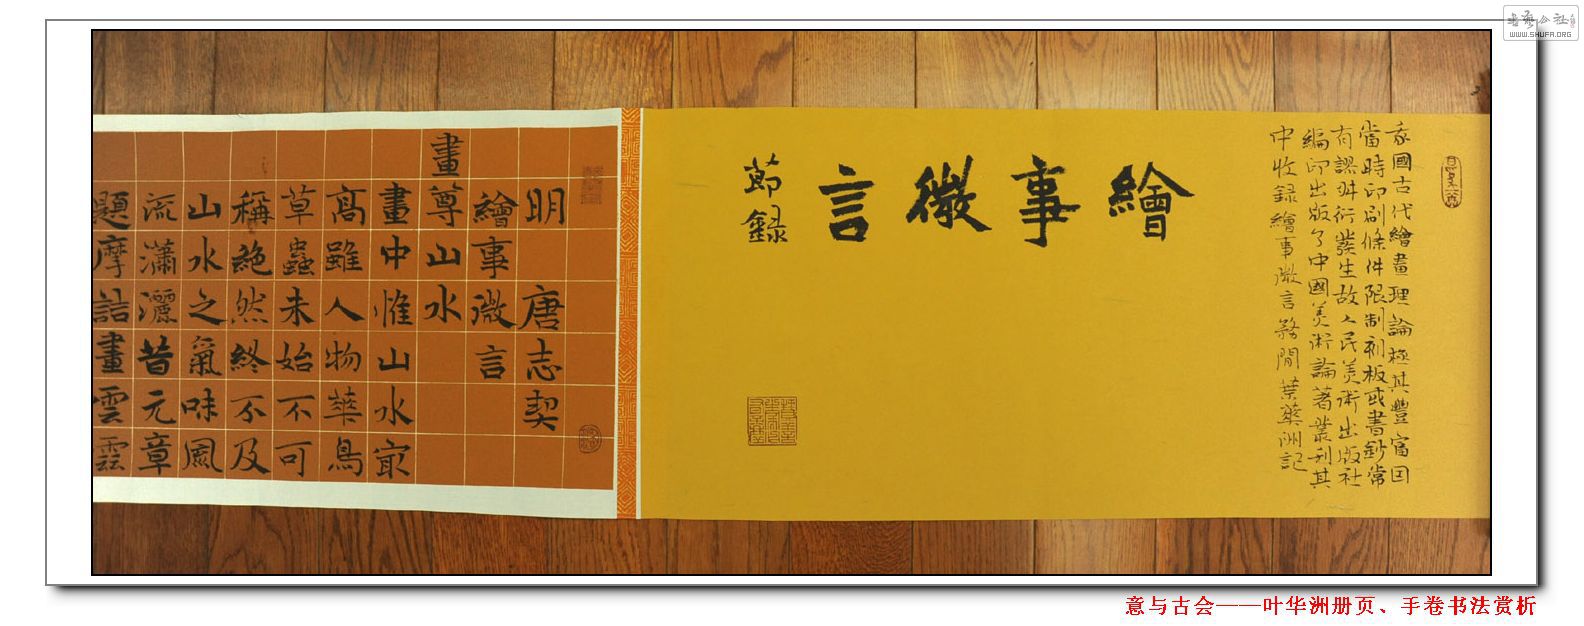 我國古代繪畫理論極其豐富因
當時印刷條件限制刻板或書鈔常
有謬舛衍發生故人民美術出版社
編印出版了中國美術論著叢刊其
中收録繪事微言務閒葉華洲記
繪事微言
節録
明 唐志契
繪事微言
畫尊山水
畫中惟山水㝡
高雖人物華鳥
草蟲未始不可
稱絶然終不及
山水之氣味風
流瀟灑昔元章
題摩詰畫雲雲
WWW.SHUFA.ORG
意与古会——叶华洲册页、手卷书法赏析